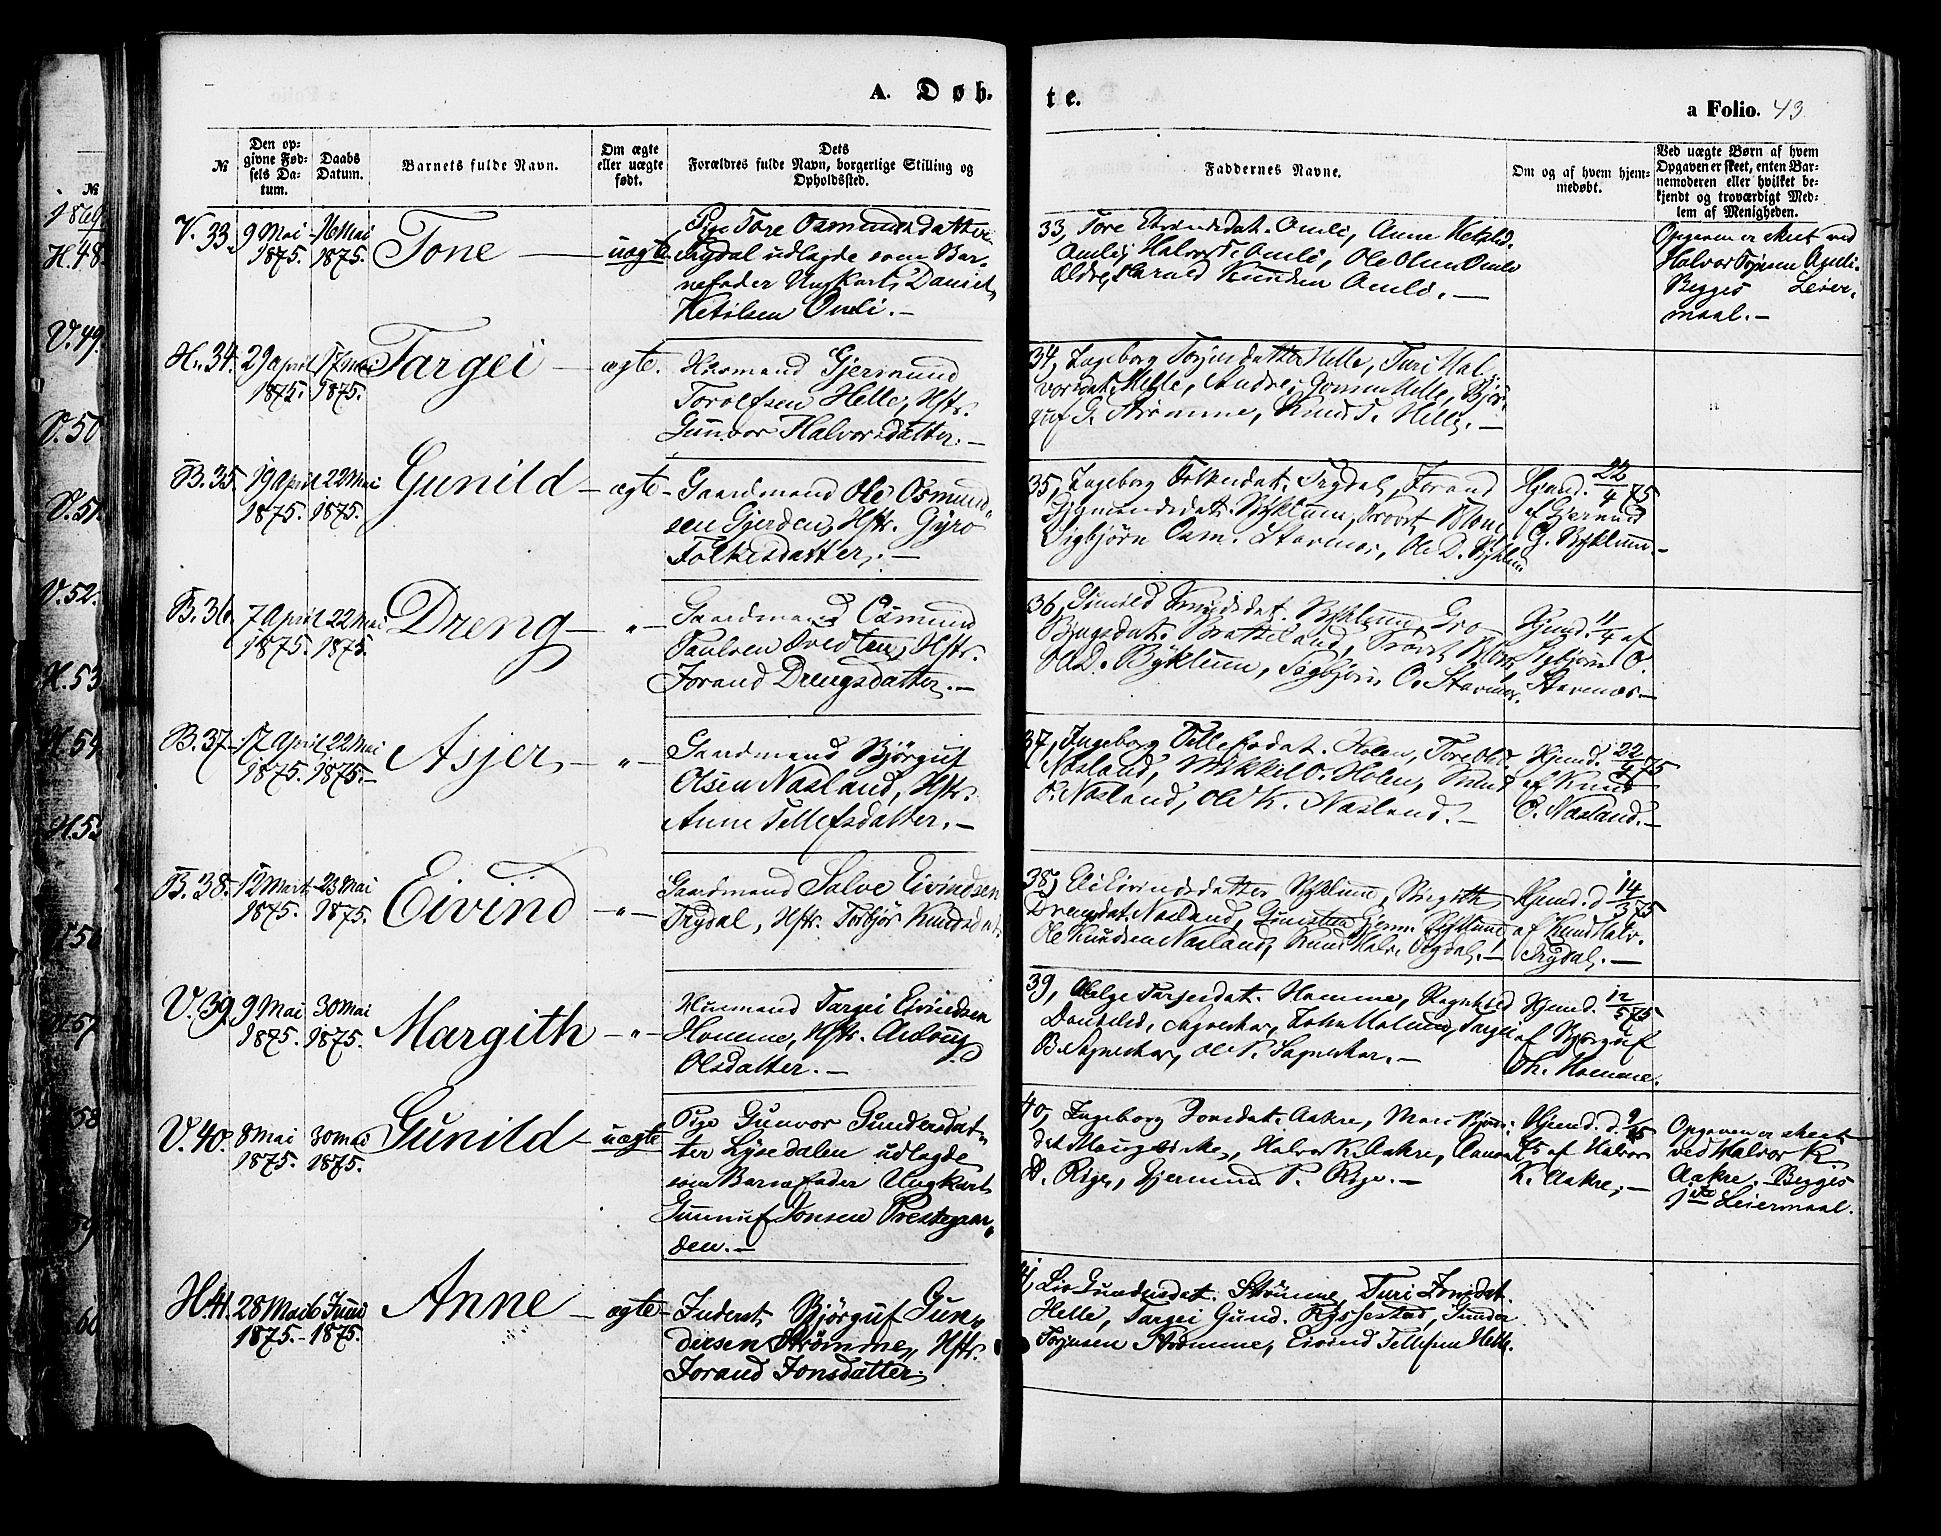 A. Døb-
te.
a Folio. 43
№
Den op-
givne Fød-
sels Da-
tum.
Daabs
Datum.
Barnets fulde Navn.
Om ægte
eller uægte
født.
Dets
Forældres fulde Navn, borgerlige Stilling og
Opholdssted.
Faddernes Navne.
Om og af hvem hjem-
medøbt.
Ved uægte Børn af hvem
Opgaven er skeet, enten Bar-
nemoderen eller hvilket be-
kjendt og troværdigt Med-
lem af Menigheden.
№
1869
H. 48.
V. 49.
V. 50
V. 51.
V. 52.
H. 53
H. 54
57
58
59
60
V. 33, 9 Mai 16 Mai
1875. 1875.
Tone — uægte
Pige Tore Osmundsdatter
Trydal udlagde som Bar-
nefader Ungkarl Daniel
Ketilsen Omli. —
33, Tore Omli, Anne
Omli, Halvor T. Omli, Ole Olsen Omli
Harald Knudsen Omli. —
Opgaven er skeet ved
Halvor Tojesen Omli.
Begges Leier-
maal. —
H. 34. 29 April 17 Mai
1875. 1875.
Targei — ægte.
Husmand Gjermund
Torolfsen Helle, Hstr.
Gunvor Halvorsdatter. —
34, Ingeborg Torjusdatter Helle, Turi Hal-
vorsdat. Helle, Andres Helle, Bjør-
guf G. Strømme, Knud T. Helle. —
B. 35. 19 April 22 Mai
1875. 1875.
Gunild — ægte —
Gaardmand Ole Osmund-
sen Gjerden, Hstr. Gyro
Folkesdatter. —
35, Ingeborg Folkesdat. Trydal, Jorand
Gjermundsdat. Byklum, Trovst
Sigbjørn Osm. Stavenes, Ole D. Byklum
Hjemd. 22/4 75
af Gjermund
G. Byklum. —
B. 36, 7 April 22 Mai
1875. 1875.
Dreng — " —
Gaardmand Osmund
Paulsen Hstr.
Jorand Drengsdatter. —
36, Gunild Knudsdat. Byklum, Gro
Brotteland, Trovst
Ole D. Byklum, Sigbjørn O. Stavenes.
Hjemd. 11/4 af
Sigbjørn O.
Stavenes —
B. 37 — 17 April 22 Mai
1875. 1875. —
Asjer, — " —
Gaardmand Bjørguf
Olsen Nasland, Hstr.
Anne Tellefsdatter. —
37, Ingeborg Tellefsdat. Holen, Tore Olsd.
Nasland, Mikkel O. Holen, Knud
O. Nasland, Ole K. Nasland. —
Hjemd. 22/4 75
af Knud
O. Nasland. —
B. 38. — 12 Marts 23 Mai
1875. 1875.
Eivind — " —
Gaardmand Salve Eivindsen
Trydal, Hstr. Torbjør Knudsdat.
38, Eivindsdatter Byklum, Birgith
Drengsdat. Nasland, Gjerm. Byklum,
Ole Knudsen Nasland, Knud Halv. Trydal. —
Hjemd. d 14/3 75
af Knud Halv.
Trydal. —
V. 39, 9 Mai 30 Mai
1875. 1875.
Margith — " —
Husmand Targei Eivindsen
Homme, Hstr. Aslaug
Olsdatter. —
39, Helge Tarjesdat. Homme, Ragnhild
Targei
B. Sagneskar, Ole T. Sagneskar. —
Hjemd. 12/5 75
af Bjørguf
Th. Homme.
V. 40. 8 Mai 30 Mai
1875. 1875.
Gunild — uægte
Pige Gunvor Gundersdat-
ter Lysedalen udlagde
som Barnefader Ungkarl
Gunnuf Jonsen Prestegaar-
den. —
40, Ingeborg Aakre, Mari Bjørns-
dat. Haugebirke, Halvor K. Aakre,
Rige, Gjermund P. Rige. —
Hjemd. d. 9/5
75 af Halvor
K. Aakre, —
Opgaven er skeet
ved Halvor K.
Aakre. Begges
1ste Leiermaal.
H. 41. 28 Mai 6 Juni
1875. — 1875.
Anne — ægte —
Inderst Bjørguf Gun-
dersen Strømme, Hstr.
Jorand Jonsdatter.
41, Liv Gundersdat. Strømme, Turi
Helle, Targei Gund. Rysstad, Gunder
Torjusen Strømme, Eivind Tellefsen Helle.